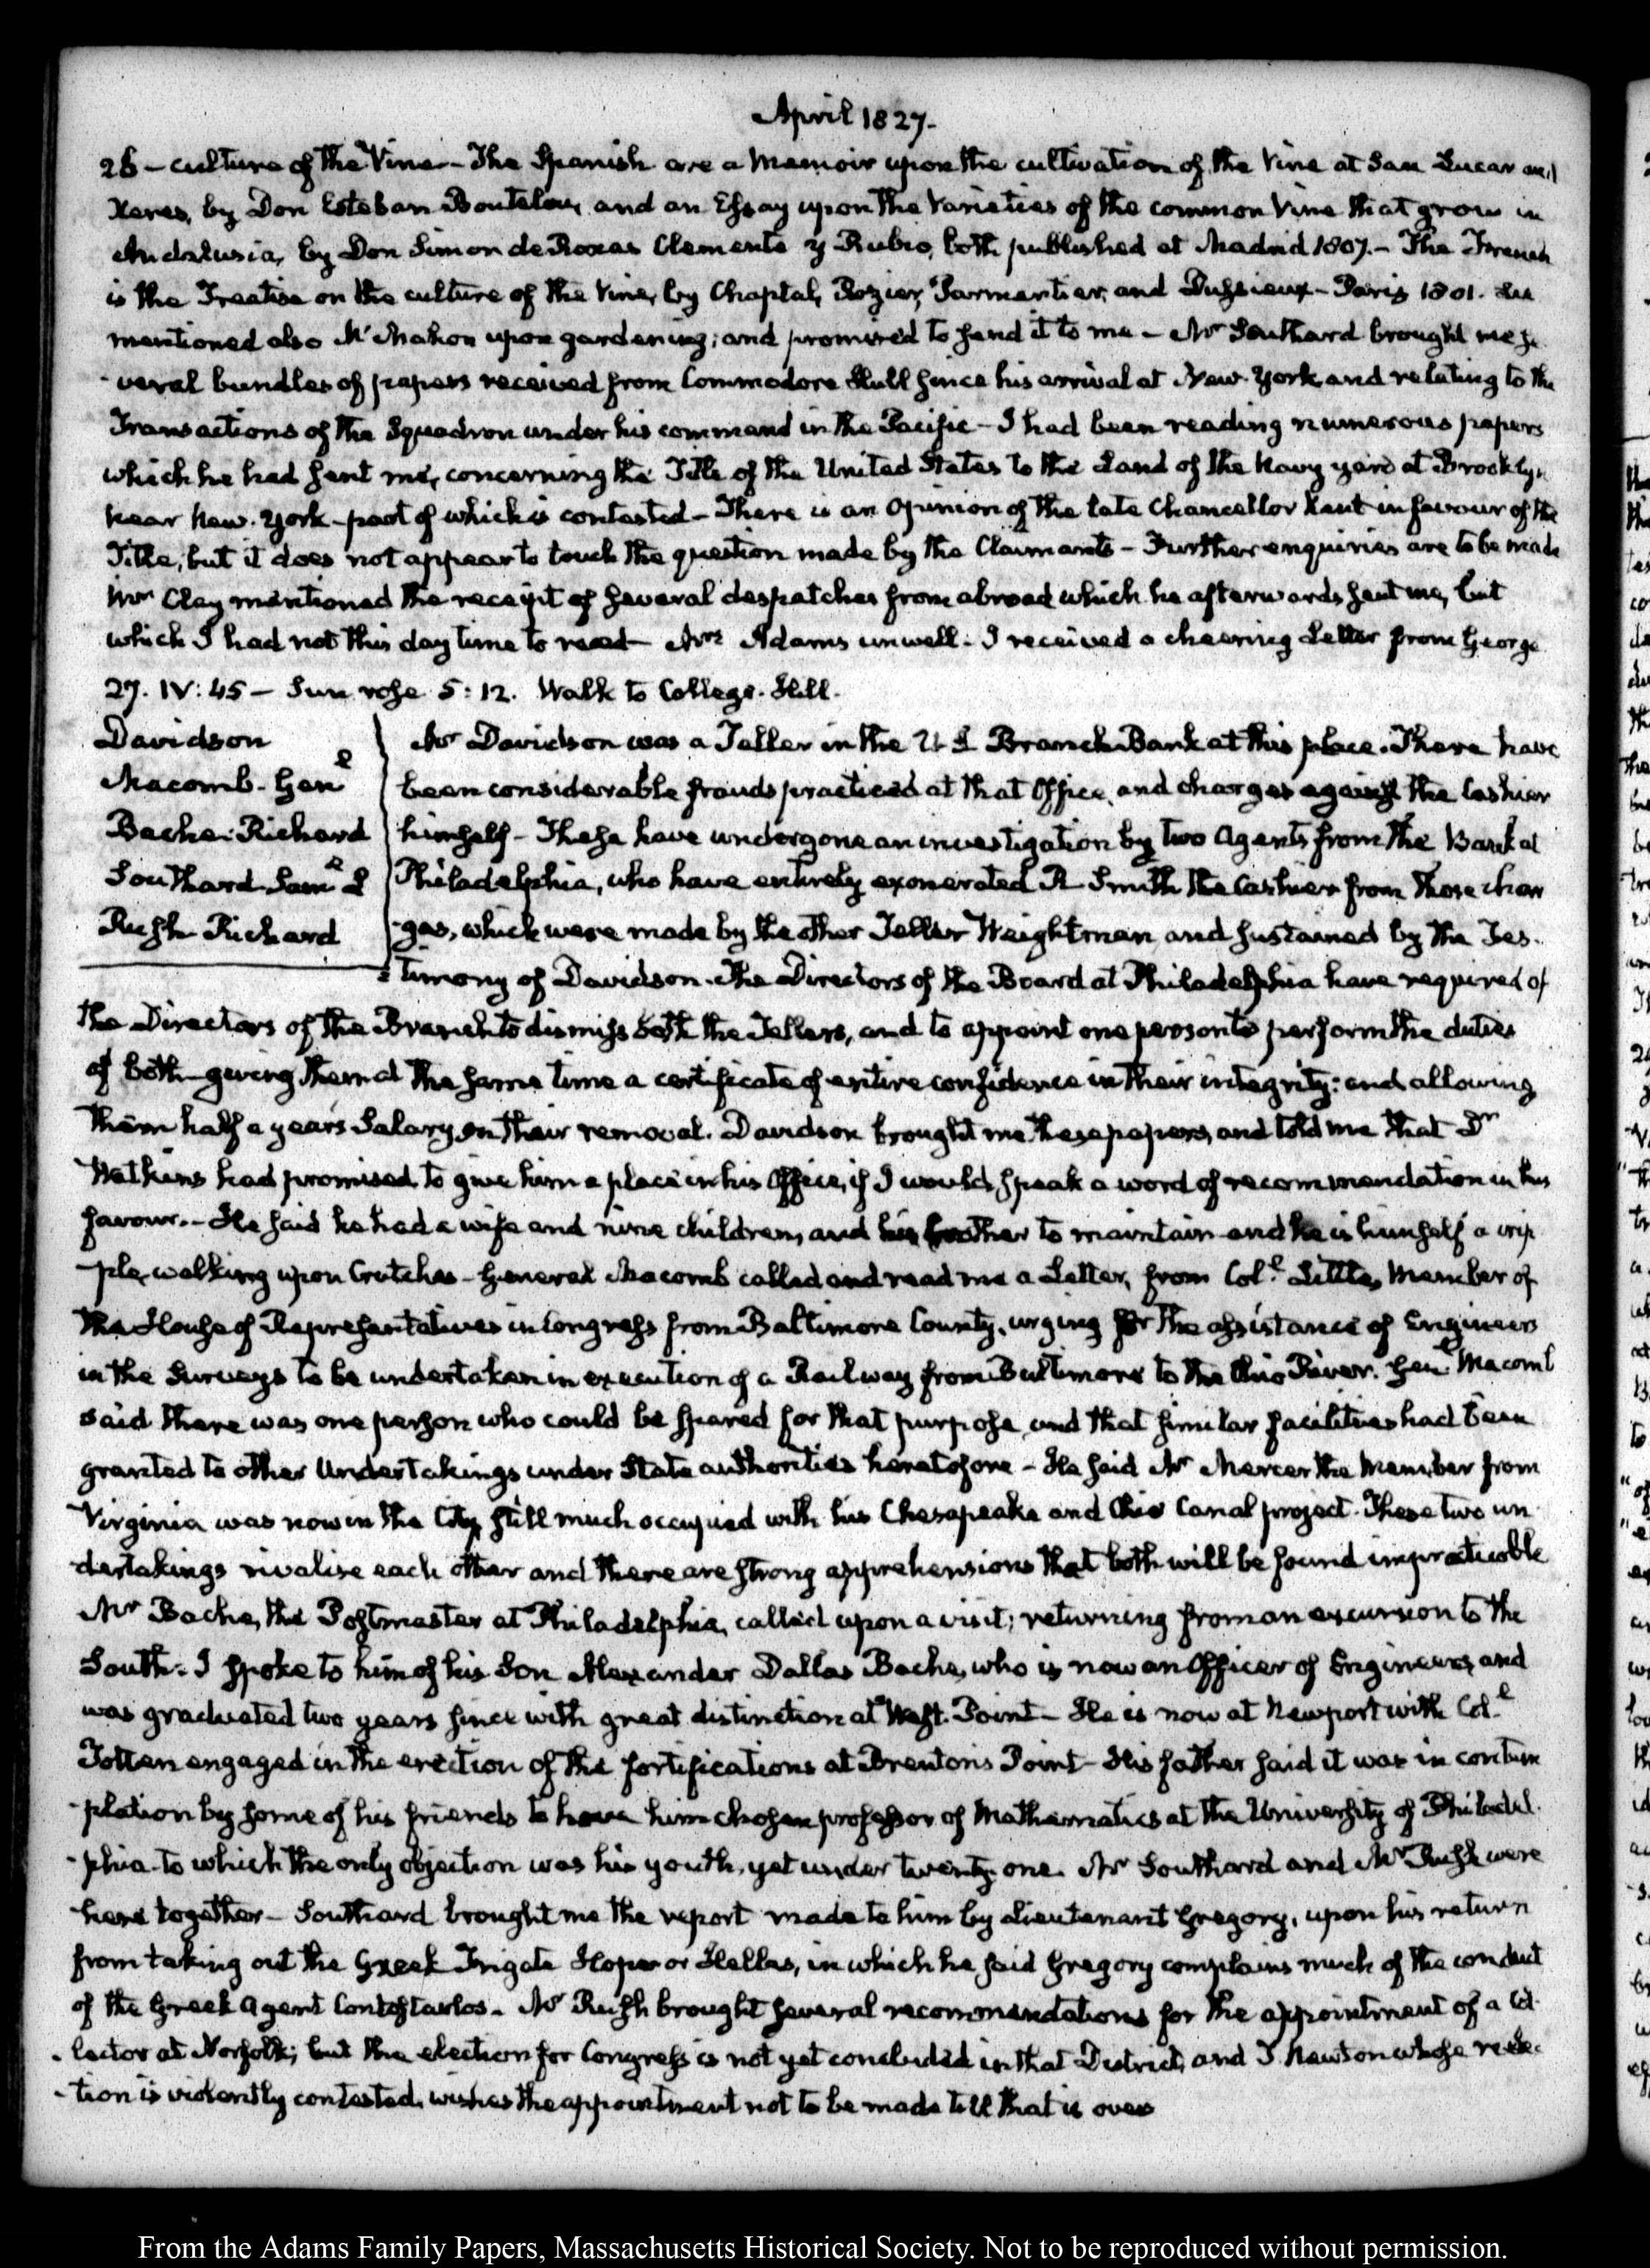 April 1827.
26 - culture of the Vine - The Spanish are a Memoir upon the cultivation of the Vine at San Lucar and
Xeres, by Don Esteban Boutelou, and an Essay upon the Varieties of the common Vine that grow in
Andalusia, by Don Simon de Roxas Clemente y Rubio, both published at Madrid 1807. - The French
is the Treatise on the culture of the Vine, by Chaptal, Rozier, Parmentier, and Dussieux - Paris 1801. He
mentioned also McMahon upon gardening; and promised to send it to me - Mr Southard brought me se
-veral bundles of papers received from Commodore Hull since his arrival at New-York and relating to the
Transactions of the Squadron under his command in the Pacific - I had been reading numerous papers
which he had sent me, concerning the Title of the United States to the Land of the Navy yard at Brooklyn
near New-York - part of which is contested - There is an Opinion of the late Chancellor Kent in favour of the
Title, but it does not appear to touch the question made by the Claimants - Further enquiries are to be made
Mr Clay mentioned the receipt of several despatches from abroad which he afterwards sent me, but
which I had not this day time to read - Mrs Adams unwell. I received a cheering Letter from George
27. IV: 45 - Sun rose 5:12. Walk to College-Hill.
Davidson
Macomb. Genl
Bache. Richard
Southard Saml L
Rush Richard
Mr Davidson was a Teller in the U S Branch Bank at this place. There have
been considerable frauds practiced at that Office, and charges against the Cashier
himself - These have undergone an investigation by two Agents from the Bank at
Philadelphia, who have entirely exonerated R Smith the Cashier from those char
-ges, which were made by the other Teller Weightman, and sustained by the Tes-
-timony of Davidson. The Directors of the Board at Philadelphia have required of
the Directors of the Branch to dismiss both the Tellers, and to appoint one person to perform the duties
of both - giving them at the same time a certificate of entire confidence in their integrity: and allowing
them half a years Salary on their removal. Davidson brought me these papers, and told me that Dr
Watkins had promised to give him a place in his Office, if I would speak a word of recommendation in his
favour. - He said he had a wife and nine children, and his brother to maintain and he is himself a crip
-ple, walking upon Crutches - General Macomb called and read me a Letter, from Coll Little, Member of
the House of Representatives in Congress from Baltimore County, urging for the assistance of Engineers
in the Surveys to be undertaken in execution of a Railway from Baltimore to the Ohio River. Genl Macomb
said there was one person who could be spared for that purpose, and that similar facilities had been
granted to other Undertakings under State authorities heretofore - He said Mr Mercer the Member from
Virginia was now in the City, still much occupied with his Chesapeake and Ohio Canal project. These two un
-dertakings rivalise each other and there are strong apprehensions that both will be found impracticable
Mr Bache, the Postmaster at Philadelphia, called upon a visit; returning from an excursion to the
South. I spoke to him of his Son Alexander Dallas Bache, who is now an Officer of Engineers, and
was graduated two years since with great distinction at West-Point - He is now at Newport with Coll
Totten engaged in the erection of the fortifications at Brenton's Point - His father said it was in contem
-plation by some of his friends to have him chosen professor of Mathematics at the University of Philadel-
-phia - to which the only objection was his youth, yet under twenty-one. Mr Southard and Mr Rush were
here together - Southard brought me the report made to him by Lieutenant Gregory, upon his return
from taking out the Greek Frigate Hope or Hellas, in which he said Gregory complains much of the conduct
of the Greek Agent Contostavlos. Mr Rush brought several recommendations for the appointment of a Col-
-lector at Norfolk; but the election for Congress is not yet concluded in that District, and T. Newton whose re-elec-
-tion is violently contested, wishes the appointment not to be made till that is over
From the Adams Family Papers, Massachusetts Historical Society. Not to be reproduced without permission.